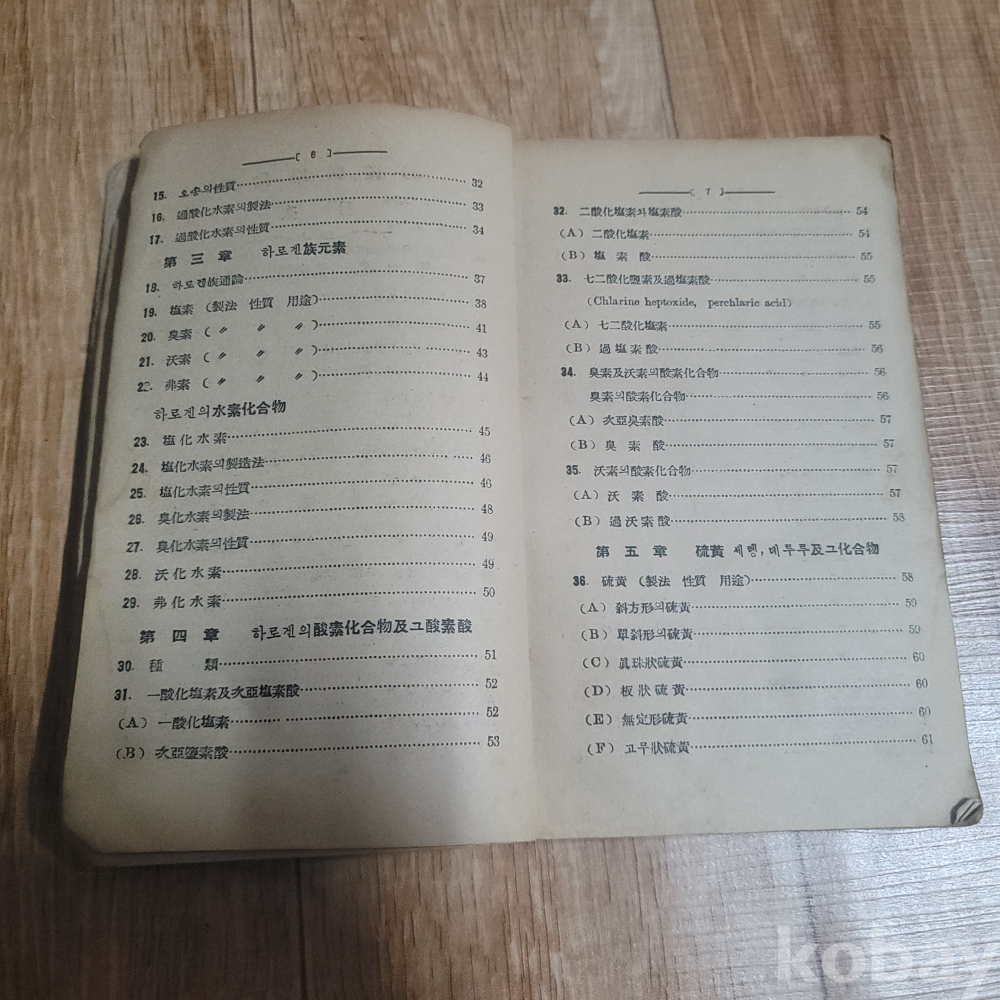 〔 6 〕
15. 오존의性質 32
16. 過酸化水素의製法 33
17. 過酸化水素의性質 34
第三章 하로겐族元素
18. 하로겐族通論 37
19. 塩素 (製法 性質 用途) 38
20. 臭素 (〃 〃 〃) 41
21. 沃素 (〃 〃 〃) 43
22. 弗素 (〃 〃 〃) 44
하로겐의水素化合物
23. 塩化水素 45
24. 塩化水素의製造法 46
25. 塩化水素의性質 46
26. 臭化水素의製法 48
27. 臭化水素의性質 49
28. 沃化水素 49
29. 弗化水素 50
第四章 하로겐의酸素化合物及그酸素酸
30. 種類 51
31. 一酸化塩素及次亞塩素酸 52
(A) 一酸化塩素 52
(B) 次亞鹽素酸 53
〔 7 〕
32. 二酸化塩素와塩素酸 54
(A) 二酸化塩素 54
(B) 塩素酸 55
33. 七二酸化鹽素及過塩素酸 55
(Chlarine heptoxide, perchlaric acid)
(A) 七二酸化塩素 55
(B) 過塩素酸 56
34. 臭素及沃素의酸素化合物 56
臭素의酸素化合物 56
(A) 次亞臭素酸 57
(B) 臭素酸 57
35. 沃素의酸素化合物 57
(A) 沃素酸 57
(B) 過沃素酸 58
第五章 硫黃 세렌, 데루루及그化合物
36. 硫黃 (製法 性質 用途) 58
(A) 斜方形의硫黃 59
(B) 單斜形의硫黃 59
(C) 眞珠狀硫黃 60
(D) 板狀硫黃 60
(E) 無定形硫黃 60
(F) 고무狀硫黃 61
kobay